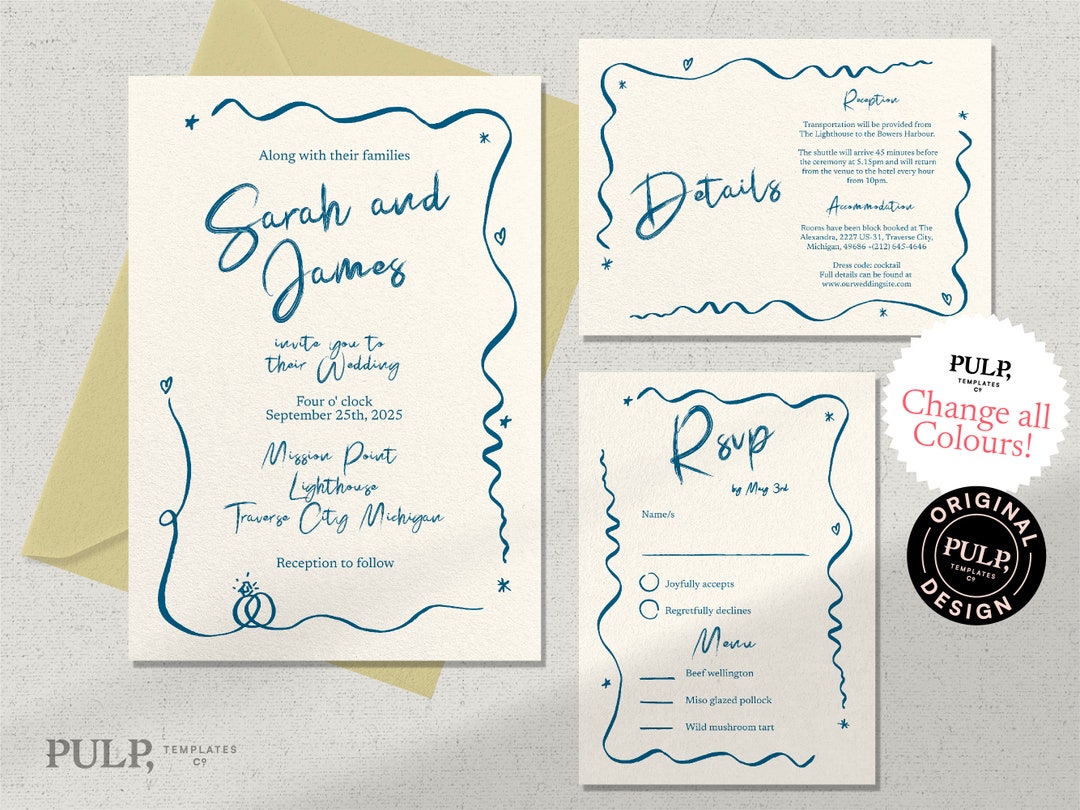 Along with their families
Sarah and
James
invite you to
their Wedding
Four o' clock
September 25th, 2025
Mission Point
Lighthouse
Traverse City Michigan
Reception to follow
Details
Reception
Transportation will be provided from
The Lighthouse to the Bowers Harbour.
The shuttle will arrive 45 minutes before
the ceremony at 5.15pm and will return
from the venue to the hotel every hour
from 10pm.
Accommodation
Rooms have been block booked at The
Alexandra, 2227 US-31, Traverse City,
Michigan, 49686 +(212) 645-4646
Dress code: cocktail
Full details can be found at
www.ourweddingsite.com
Rsvp
by May 3rd
Name/s
Joyfully accepts
Regretfully declines
Menu
Beef wellington
Miso glazed pollock
Wild mushroom tart
PULP,
TEMPLATES
Cº
Change all
Colours!
ORIGINAL
PULP,
TEMPLATES
Cº
DESIGN
PULP,
TEMPLATES
Cº